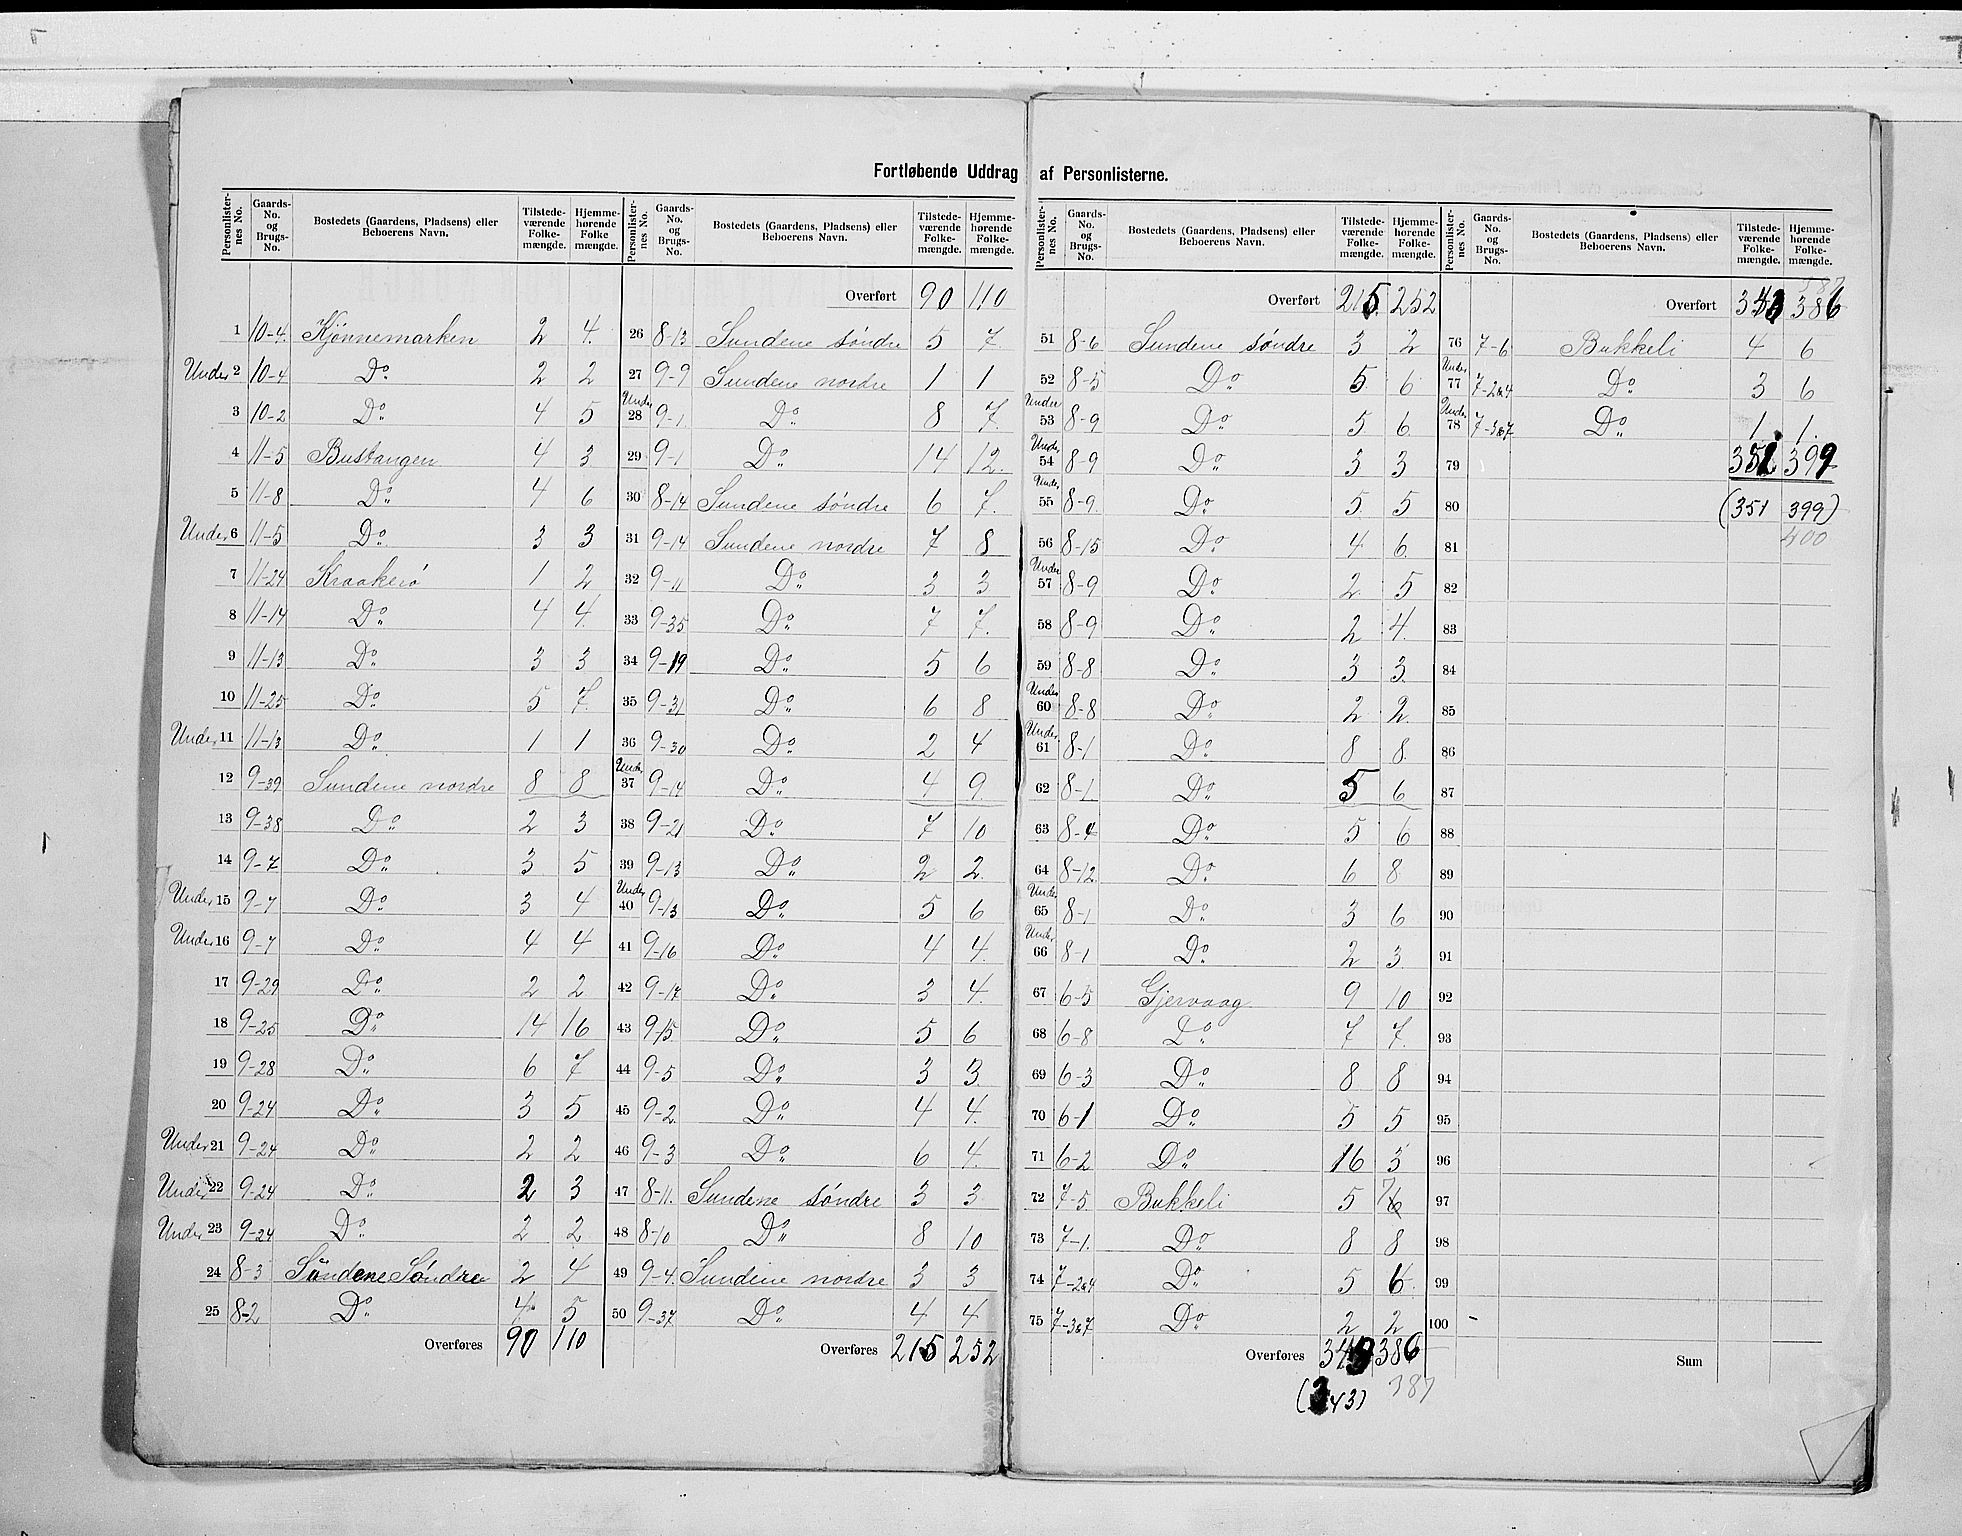 Fortløbende Uddrag af Personlisterne.
Personlisternes No. Gaards-No. og Brugs-No. Bostedets (Gaardens, Pladsens) eller Beboerens Navn. Tilstedeværende Folkemængde. Hjemmehørende Folkemængde.
1 10-4. Kjønnemarken 2 4.
Under 2 10-4 Do 2 2
3 10-2 Do 4 5
4 11-5 Bustangen 4 3
5 11-8 Do 4 6
Under 6 11-5 Do 3 3
7 11-24 Kraakerö 1 2
8 11-14 Do 4 4
9 11-13 Do 3 3
10 11-25 Do 5 7.
Under 11 11-13 Do 1 1
12 9-39 Sundene nordre 8 8
13 9-38 Do 2 3
14 9-7 Do 3 5
Under 15 9-7 Do 3 4
Under 16 9-7 Do 4 4
17 9-29 Do 2 2
18 9-25 Do 14 16
19 9-28 Do 6 7
20 9-24 Do 3 5
Under 21 9-24 Do 2 2
Under 22 9-24 Do 2 3
Under 23 9-24 Do 2 2
24 8-3 Sundene Søndre 2 4
25 8-2 Do 4 5
Overføres 90 110
Personlisternes No. Gaards-No. og Brugs-No. Bostedets (Gaardens, Pladsens) eller Beboerens Navn. Tilstedeværende Folkemængde. Hjemmehørende Folkemængde.
Overført 90 110
26 8-13 Sundene søndre 5 7.
27 9-9 Sundene nordre 1 1
Under 28 9-1. Do 8 7.
29 9-1 Do 14 12.
30 8-14 Sundene søndre 6 7.
31 9-14 Sundene nordre 7 8
32 9-11 Do 3 3
33 9-35 Do 7 7.
34 9-19 Do 5 6
35 9-31 Do 6 8
36 9-30 Do 2 4
Under 37 9-14 Do 4 9.
38 9-21 Do 7 10
39 9-13 Do 2 2.
Under 40 9-13 Do 5 6
41 9-16 Do 4 4.
42 9-17 Do 3 4.
43 9-15. Do 5 6
44 9-5 Do 3 3.
45 9-2. Do 4 4.
46 9-3 Do 6 4.
47 8-11. Sundene søndre 3 3
48 8-10 Do 8 10
49 9-4. Sundene nordre 3 3
50 9-37 Do 4 4
Overføres 215 252
Personlisternes No. Gaards-No. og Brugs-No. Bostedets (Gaardens, Pladsens) eller Beboerens Navn. Tilstedeværende Folkemængde. Hjemmehørende Folkemængde.
Overført 215. 252
51 8-6 Sundene søndre 3 2
52 8-5 Do 5 6
Under 53 8-9 Do 5 6
Under 54 8-9 Do 3 3
Under 55 8-9. Do 5 5
56 8-15 Do 4 6.
Under 57 8-9 Do 2 5
58 8-9 Do 2 4.
59 8-8 Do 3 3.
Under 60 8-8 Do 2 2.
Under 61 8-1 Do 8 8.
62 8-1 Do 5 6
63 8-4 Do 5 6
64 8-12. Do 6 8
Under 65 8-1 Do 3 6
Under 66 8-1 Do 2 3
67 6-5 Gjervaag 9 10
68 6-8 Do 7 7.
69 6-3 Do 8 8
70 6-1 Do 5 5
71 6-2 Do 16 3
72 7-5. Bukkeli 5 7 6
73 7-1. Do 8 8
74 7-2&4 Do 5 6
75 7-3&7 Do 2 2
Overføres 343 386
(343) 387
Personlisternes No. Gaards-No. og Brugs-No. Bostedets (Gaardens, Pladsens) eller Beboerens Navn. Tilstedeværende Folkemængde. Hjemmehørende Folkemængde.
387
Overført 343 386
76 7-6 Bukkeli 4 6
Under 77 7-2&4 Do 3 6
Under 78 7-3&7 Do 1 1.
79 351 399
80 (351 399)
81 400
82
83
84
85
86
87
88
89
90
91
92
93
94
95
96
97
98
99
100
Sum